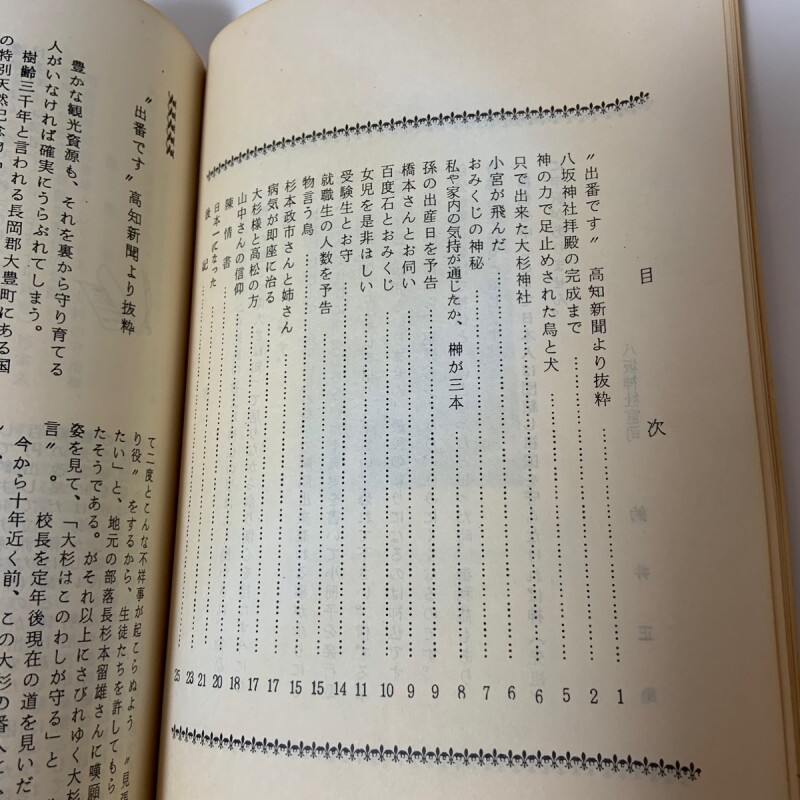 目次
〝出番です〟 高知新聞より抜粋……1
八坂神社拝殿の完成まで……2
神の力で足止めされた烏と犬……5
只で出来た大杉神社……6
小宮が飛んだ……6
おみくじの神秘……7
私や家内の気持が通じたか、榊が三本……8
孫の出産日を予告……9
橋本さんとお伺い……9
百度石とおみくじ……10
女児を是非ほしい……11
受験生とお守……14
就職生の人数を予告……15
物言う烏……15
杉本政市さんと姉さん……17
病気が即座に治る……17
大杉様と高松の方……18
山中さんの信仰……20
陳情書……21
日本一になった……23
後記……25
〝出番です〟 高知新聞より抜粋
豊かな観光資源も、それを裏から守り育てる
人がいなければ確実にうらぶれてしまう。
樹齢三千年と言われる長岡郡大豊町にある国
の特別天然記念物
て二度とこんな不祥事が起こらぬよう〝見張
り役〟をするから、生徒たちを許してもら
たい」と、地元の部落長杉本留雄さんに嘆願
たそうである。がそれ以上にさびれゆく大杉
姿を見て、「大杉はこのわしが守る」と
言〟。 校長を定年後現在の道を見いだ
今から十年近く前、この大杉の番人に